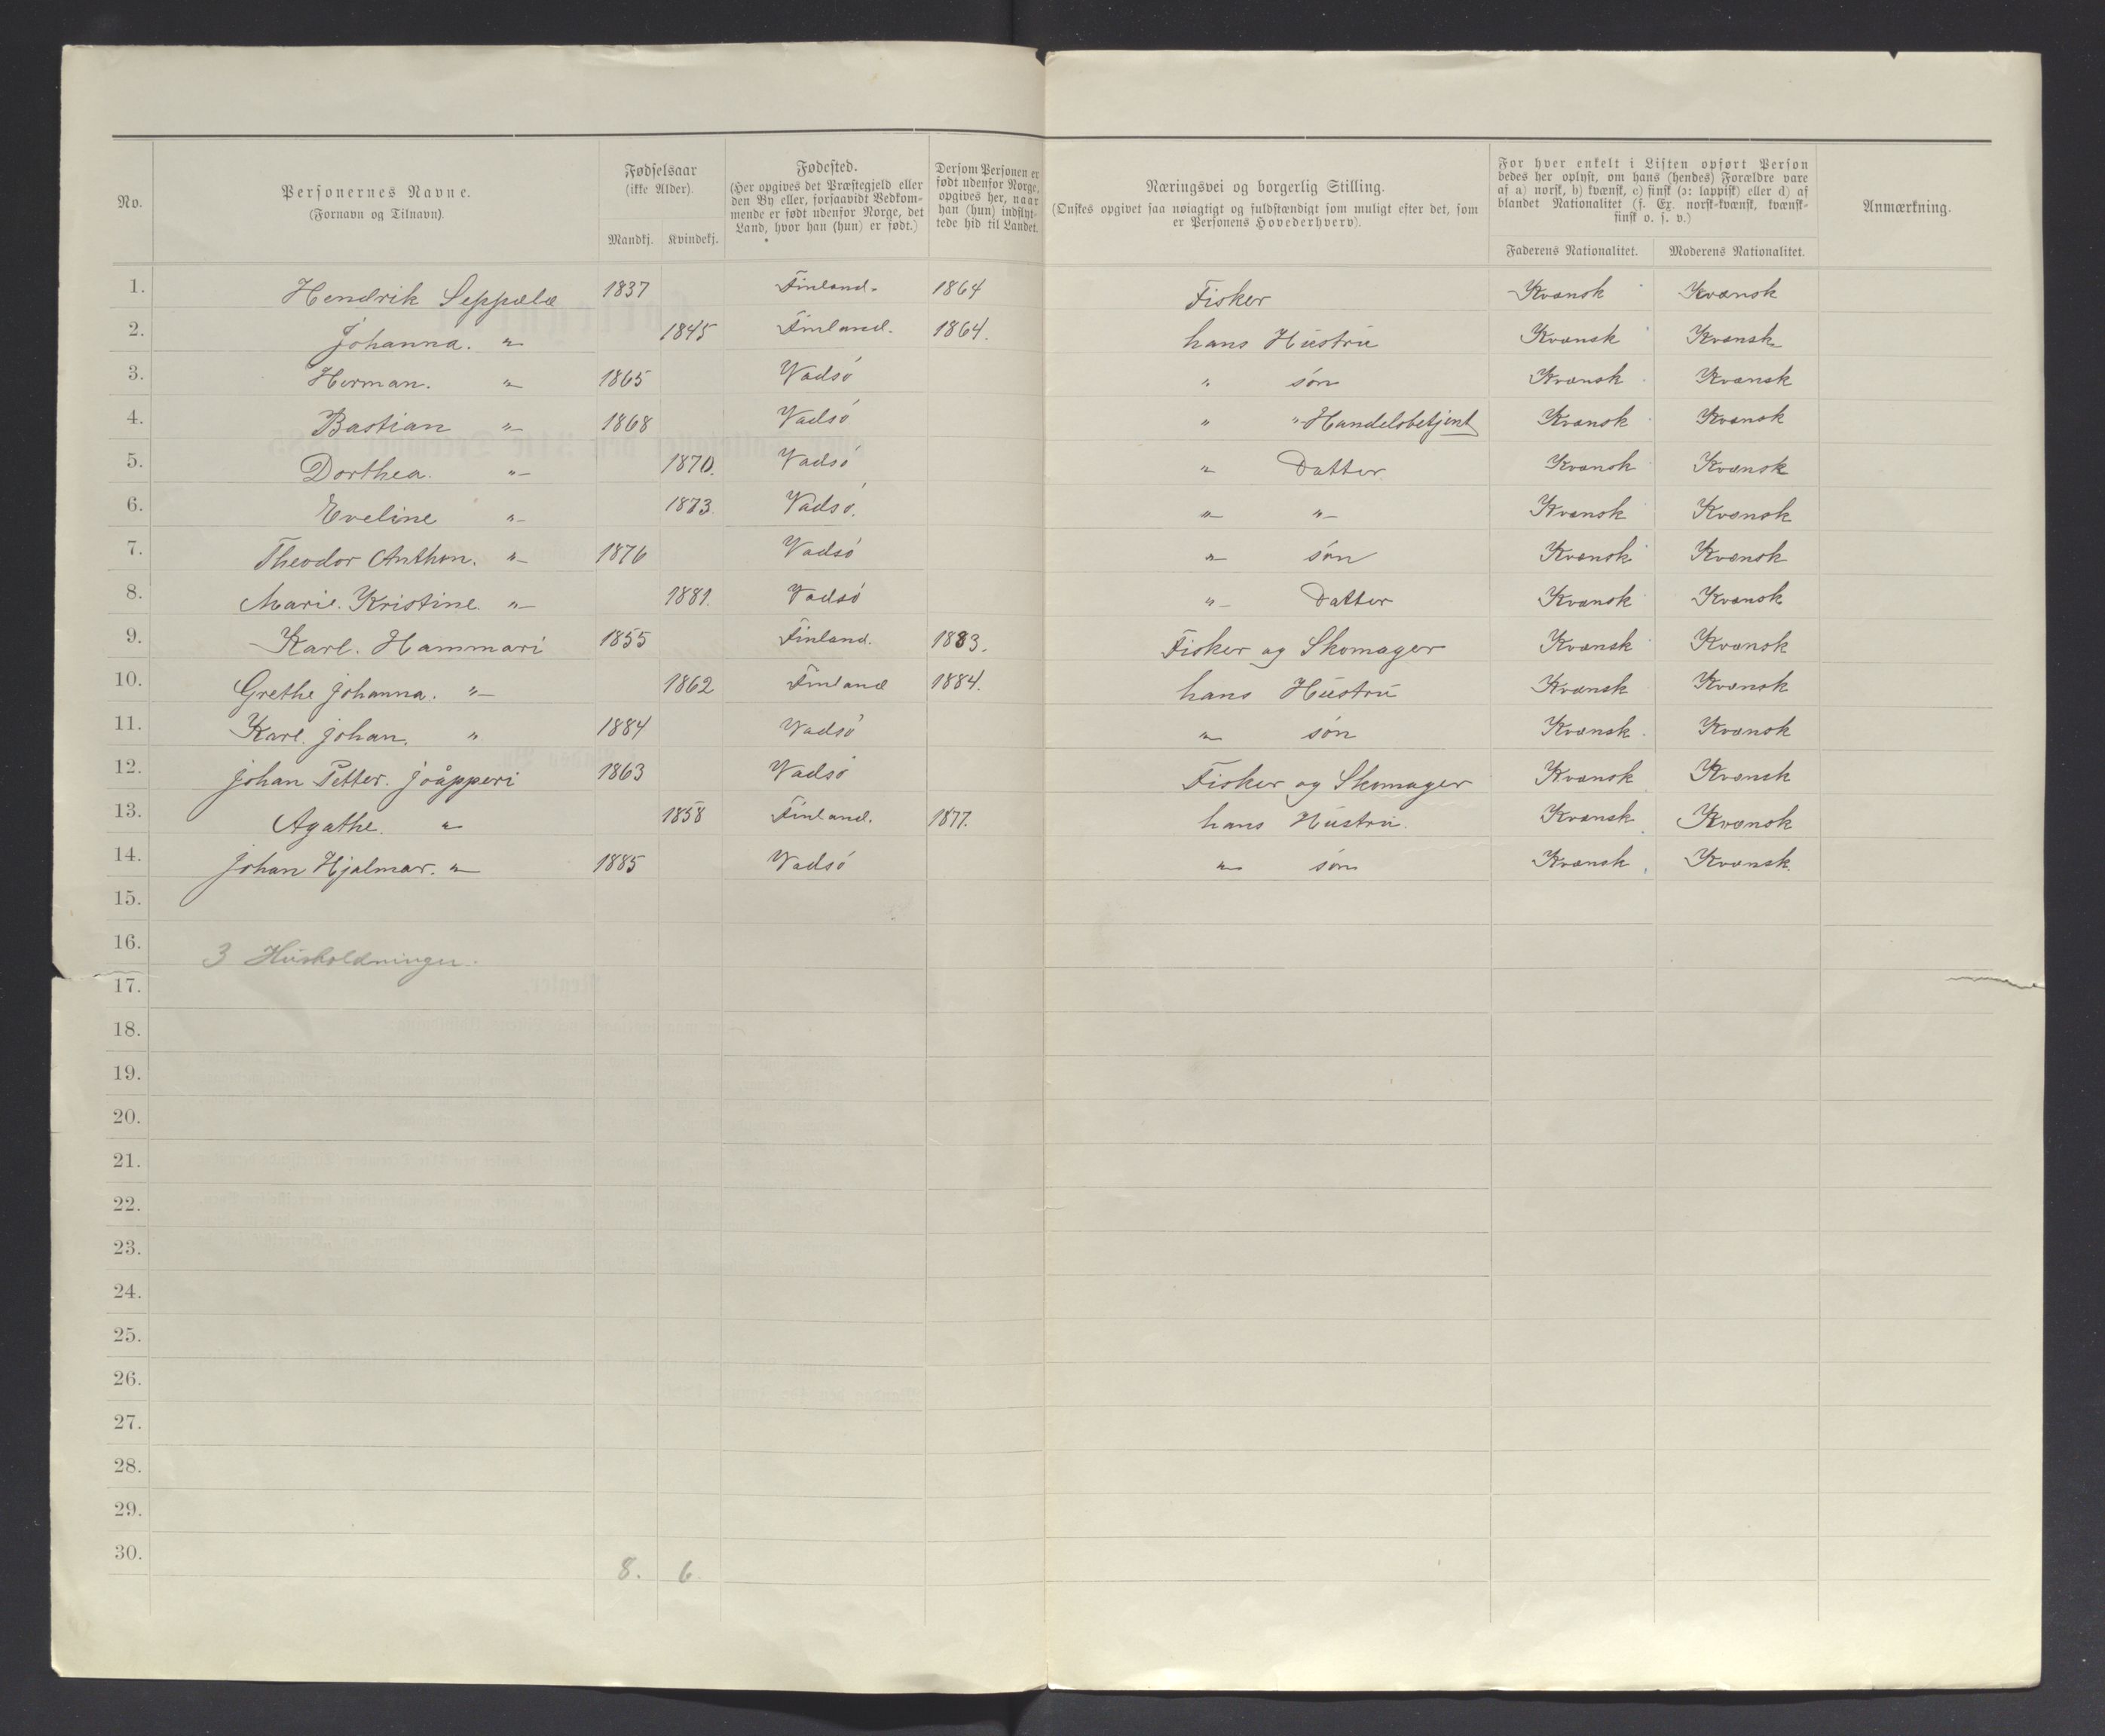 No.
Personernes Navne.
(Fornavn og Tilnavn).
Fødselsaar
(ikke Alder).
Mandkj. Kvindekj.
Fødested.
(Her opgives det Præstegjeld eller
den By eller, forsaavidt Vedkom-
mende er født udenfor Norge, det
Land, hvor han (hun) er født.)
Dersom Personen er
født udenfor Norge,
opgives her, naar
han (hun) indflyt-
tede hid til Landet.
Næringsvei og borgerlig Stilling.
(Ønskes opgivet saa nøiagtigt og fuldstændigt som muligt efter det, som
er Personens Hovederhverv).
For hver enkelt i Listen opført Person
bedes her oplyst, om hans (hendes) Forældre vare
af a) norsk, b) kvænsk, c) finsk (ɔ: lappisk) eller d) af
blandet Nationalitet (f. Ex. norsk-kvænsk, kvænsk-
finsk o. s. v.)
Faderens Nationalitet. Moderens Nationalitet.
Anmærkning.
1. Hendrik Seppælæ 1837 Finland. 1864 Fisker Kvænsk Kvænsk
2. Johanna. " 1845 Finland. 1864. hans Hustru Kvænsk Kvænsk
3. Herman. " 1865 Vadsø " søn Kvænsk Kvænsk
4. Bastian " 1868 Vadsø " " Handelsbetjent Kvænsk Kvænsk
5. Dorthea. " 1870. Vadsø " Datter Kvænsk Kvænsk
6. Eveline " 1873. Vadsø. " " Kvænsk Kvænsk
7. Theodor Anthon. " 1876 Vadsø " søn Kvænsk Kvænsk
8. Marie. Kristine. " 1881. Vadsø " Datter Kvænsk Kvænsk
9. Karl. Hammari 1855 Finland. 1883. Fisker og Skomager Kvænsk Kvænsk
10. Grethe Johanna. " 1862 Finland 1884. hans Hustru Kvænsk Kvænsk
11. Karl. Johan. " 1884 Vadsø " søn Kvænsk Kvænsk
12. Johan Petter. Joåpperi 1863 Vadsø Fisker og Skomager Kvænsk Kvænsk
13. Agathe. " 1858 Finland. 1877. hans Hustru. Kvænsk Kvænsk
14. Johan Hjalmar. " 1885 Vadsø " søn Kvænsk Kvænsk.
15.
16. 3 Husholdninger.
17.
18.
19.
20.
21.
22.
23.
24.
25.
26.
27.
28.
29.
30.
8. 6